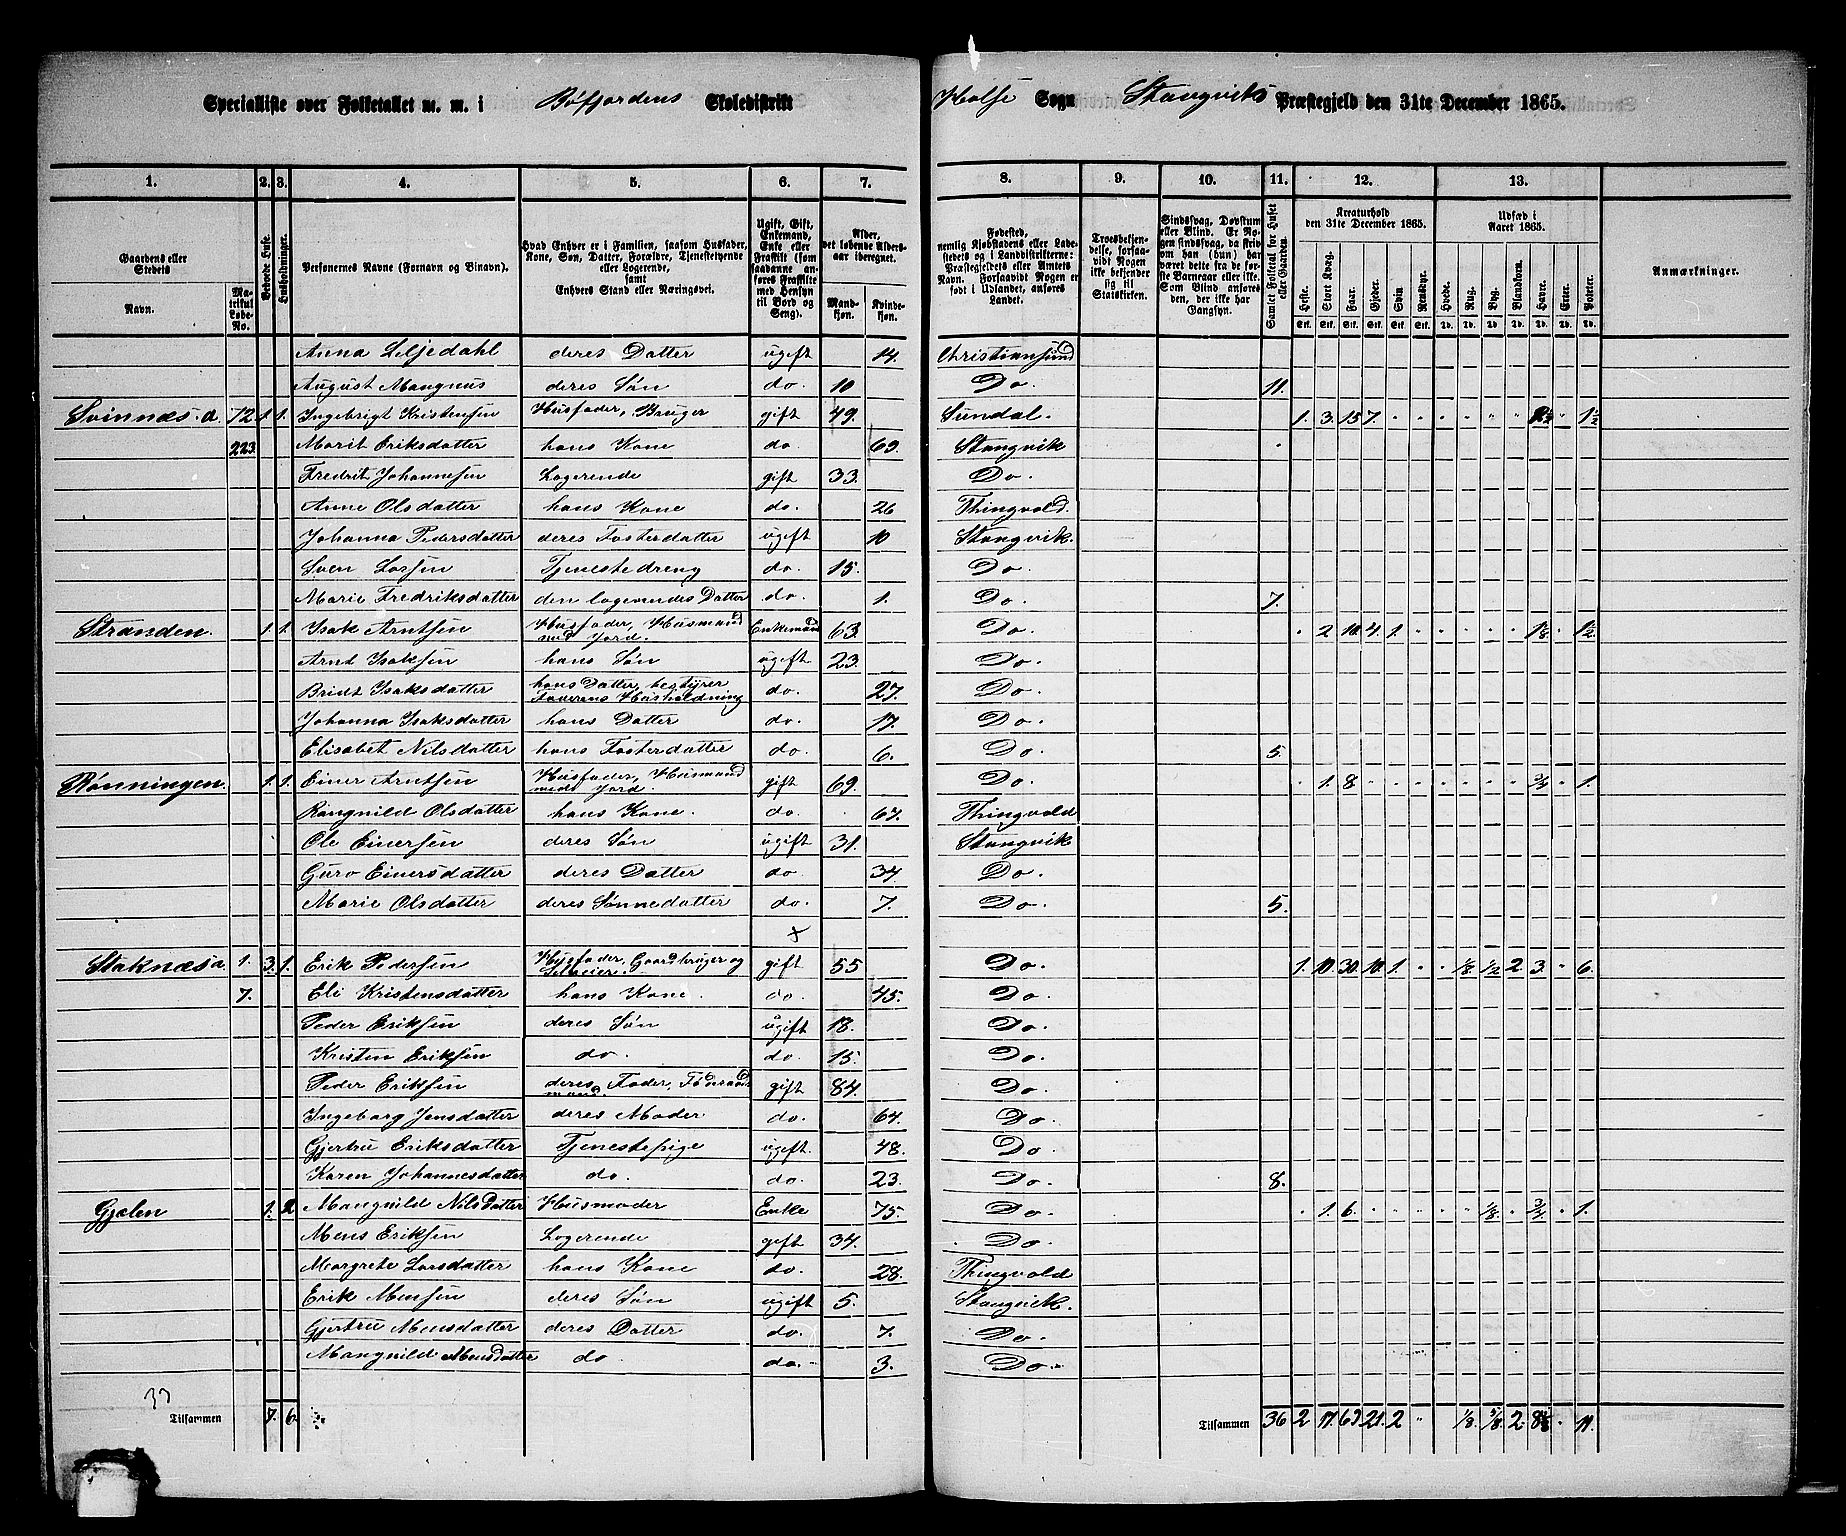 Specialliste over Folketallet m. m. i Bøfjordens Skoledistrikt Halse Sogn Stangviks Præstegjeld den 31te December 1865.
1. 2. 3. 4. 5. 6. 7. 8. 9. 10. 11. 12. 13.
Gaardens eller Stedets
Navn.
Matrikul Løbe-No.
Beboede Huse.
Husholdninger.
Personernes Navne (Fornavn og Binavn).
Hvad Enhver er i Familien, saasom Husfader, Kone, Søn, Datter, Forældre, Tjenestetyende eller Logerende, samt Enhvers Stand eller Næringsvei.
Ugift, Gift, Enkemand, Enke eller Fraskilt (som saadanne anføres Fraskilte med Hensyn til Bord og Seng).
Alder, det løbende Alders-aar iberegnet.
Mandkjøn. Kvindekjøn.
Fødested, nemlig Kjøbstadens eller Ladestedets og i Landdistrikterne: Præstegjeldets eller Amtets Navn. Forsaavidt Nogen er født i Udlandet, anføres Landet.
Troesbekjendelse, forsaavidt Nogen ikke bekjender sig til Statskirken.
Sindssvag, Døvstum eller Blind. Er Nogen sindssvag, da skriv om han (hun) har været dette fra de første Barneaar eller ikke. Som Blind anføres den, der ikke har Gangsyn.
Samlet Folketal for Huset eller Gaarden.
Kreaturhold den 31te December 1865.
Heste. Stort Kvæg. Faar. Gjeder. Svin. Rensdyr.
Udsæd i Aaret 1865.
Hvede. Rug. Byg. Blandkorn. Havre. Erter. Poteter.
Anmærkninger.
Anna Liljedahl deres Datter ugift 14 Christiansund
August Mangnus deres Søn do. 10 Do. 11.
Svinnæs. a. 72 1. 1. Ingebrigt Kristensen Husfader, Bruger gift 49. Sundal. 1. 3. 15 7. 1½
223. Marit Eriksdatter hans Kone do 69. Stangvik
Fredrik Johannesen Logerende gift 33. Do.
Anne Olsdatter hans Kone do. 26 Thingvold.
Johanna Pedersdatter deres Fosterdatter ugift 10 Stangvik.
Sven Larsen Tjenestedreng do. 15. Do.
Marie Fredriksdatter den logerendes Datter do. 1. Do. 7.
Stranden. 1. 1. Isak Arntsen Husfader, Husmand med Jord. Enkemand 63. Do. 2 10. 4. 1. 1½.
Arnt Isaksen hans Søn ugift 23. Do.
Bridt Isaksdatter hans Datter, bestyrer Faderens Husholdning do. 27. Do.
Johanna Isaksdatter hans Datter do. 17. Do.
Elisabet Nilsdatter hans Fosterdatter do. 6. Do. 5.
Rønningen. 1. 1. Einer Arntsen Husfader, Husmand med Jord. gift 69. Do. 1. 8. ¾ 1.
Rangnild Olsdatter hans Kone. do. 67. Thingvold
Ole Einersen deres Søn ugift 31. Stangvik
Guro Einersdatter deres Datter do. 34 Do.
Marie Olsdatter deres Sønnedatter do. 7. Do. 5.
×
Staknæs a 1. 3. 1. Erik Pedersen Husfader, Gaardbruger og Selveier. gift 55 Do. 1. 10. 30. 10. 1. ⅛. ½ 2 3. 6.
7. Eli Kristensdatter hans Kone. do. 45. Do.
Peder Eriksen deres Søn ugift 18. Do.
Kristen Eriksen do. do. 15. Do.
Peder Eriksen deres Fader, Føderaadsmand. gift 84. Do.
Ingeborg Jensdatter deres Moder do. 64. Do.
Gjertru Eriksdatter Tjenestepige ugift. 48. Do.
Karen Johannesdatter do. do. 23. Do. 8.
Gjælen 1. 2 Mangnild Nilsdatter Husmoder Enke 75. Do. 1. 6. ⅛. ¾ 1.
Mens Eriksen Logerende gift 34. Do.
Margrete Larsdatter hans Kone do. 28. Thingvold
Erik Mensen deres Søn ugift 5. Stangvik.
Gjertru Mensdatter deres Datter do. 7. Do.
Mangnild Mensdatter do. do. 3. Do.
33
Tilsammen 7. 6. Tilsammen 36 2 17. 69. 21. 2 ⅛. ⅝. 2. 11.